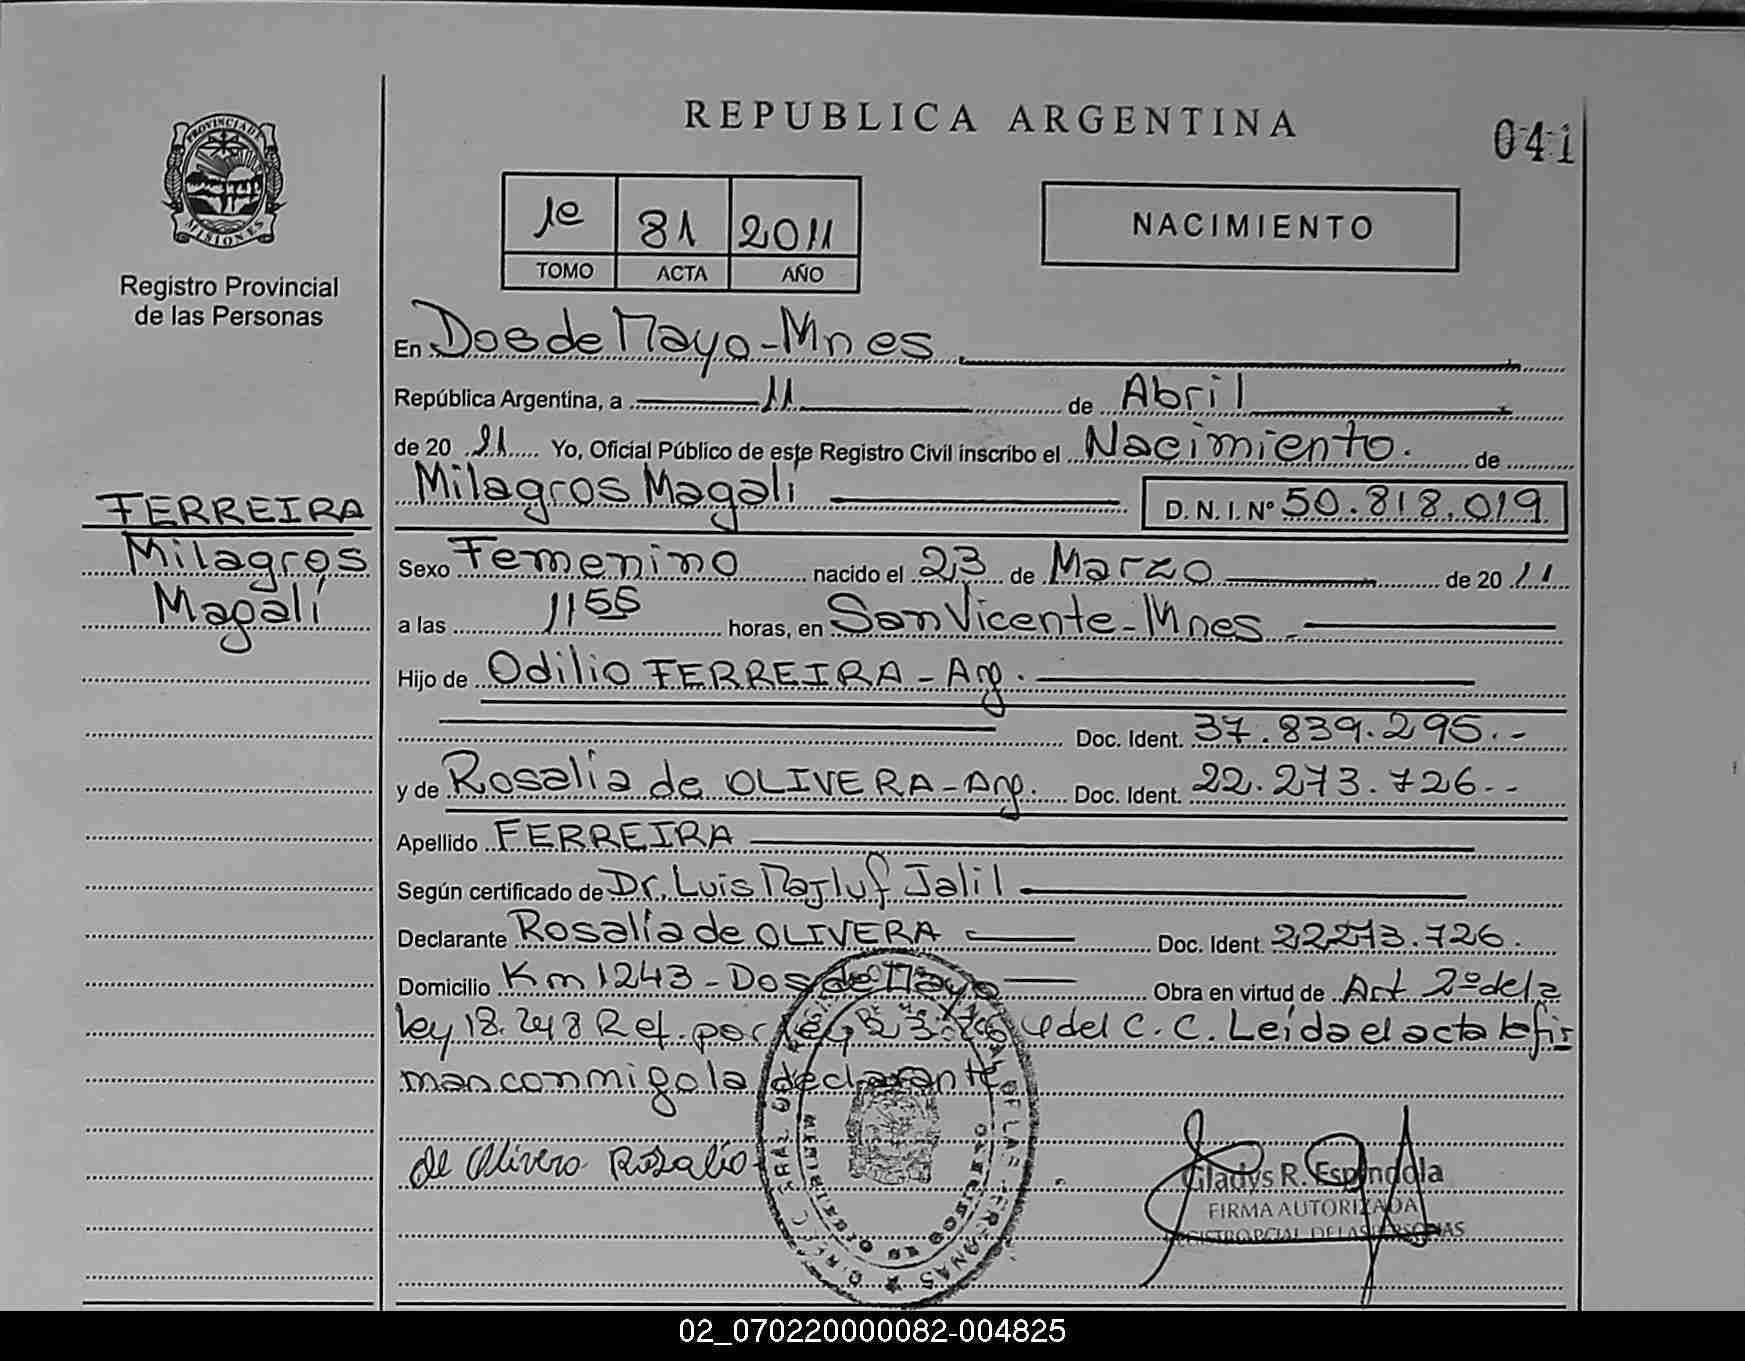 REPUBLICA ARGENTINA
041
PROVINCIA DE
MISIONES
Registro Provincial
de las Personas
1º 81 2011
TOMO ACTA AÑO
NACIMIENTO
En Dos de Mayo - Mnes
República Argentina, a 11 de Abril
de 20 11 Yo, Oficial Público de este Registro Civil inscribo el Nacimiento. de
Milagros Magalí D. N. I. Nº 50.818.019
FERREIRA
Milagros
Magalí
Sexo Femenino nacido el 23 de Marzo de 20 11
a las 1155 horas, en San Vicente - Mnes -
Hijo de Odilio FERREIRA - Arg.
Doc. Ident. 37.839.295.-
y de Rosalía de OLIVERA - Arg. Doc. Ident. 22.273.726.-
Apellido FERREIRA
Según certificado de Dr. Luis Majluf Jalil
Declarante Rosalía de OLIVERA Doc. Ident. 22273.726.
Domicilio Km 1243 - Dos de Mayo Obra en virtud de Art 2º de la
ley 18.248 Ref. por ley del C.C. Leída el acta la fir
man conmigo la declarante
de Olivera Rosalia
Gladys R. Espindola
FIRMA AUTORIZADA
REGISTRO PCIAL. DE LAS PERSONAS
02_070220000082-004825